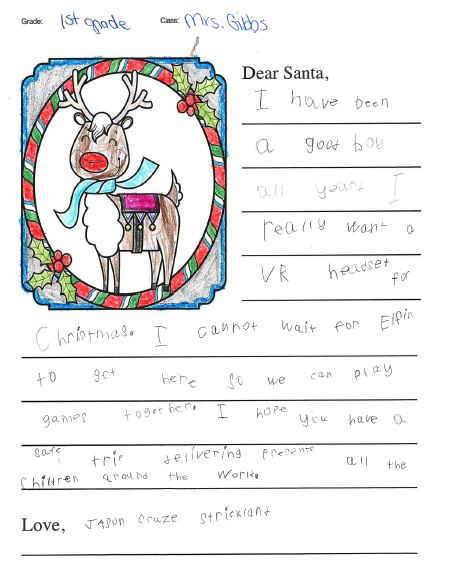 Grade: 1st grade Class: Mrs. Gibbs
Dear Santa,
I have been
a good boy
all years I
really want a
VR headset for
Christmas. I cannot wait for Elfin
to get here so we can play
games together. I hope you have a
safe trip delivering presents all the
children around the world.
Love, Jason Cruze Strickland